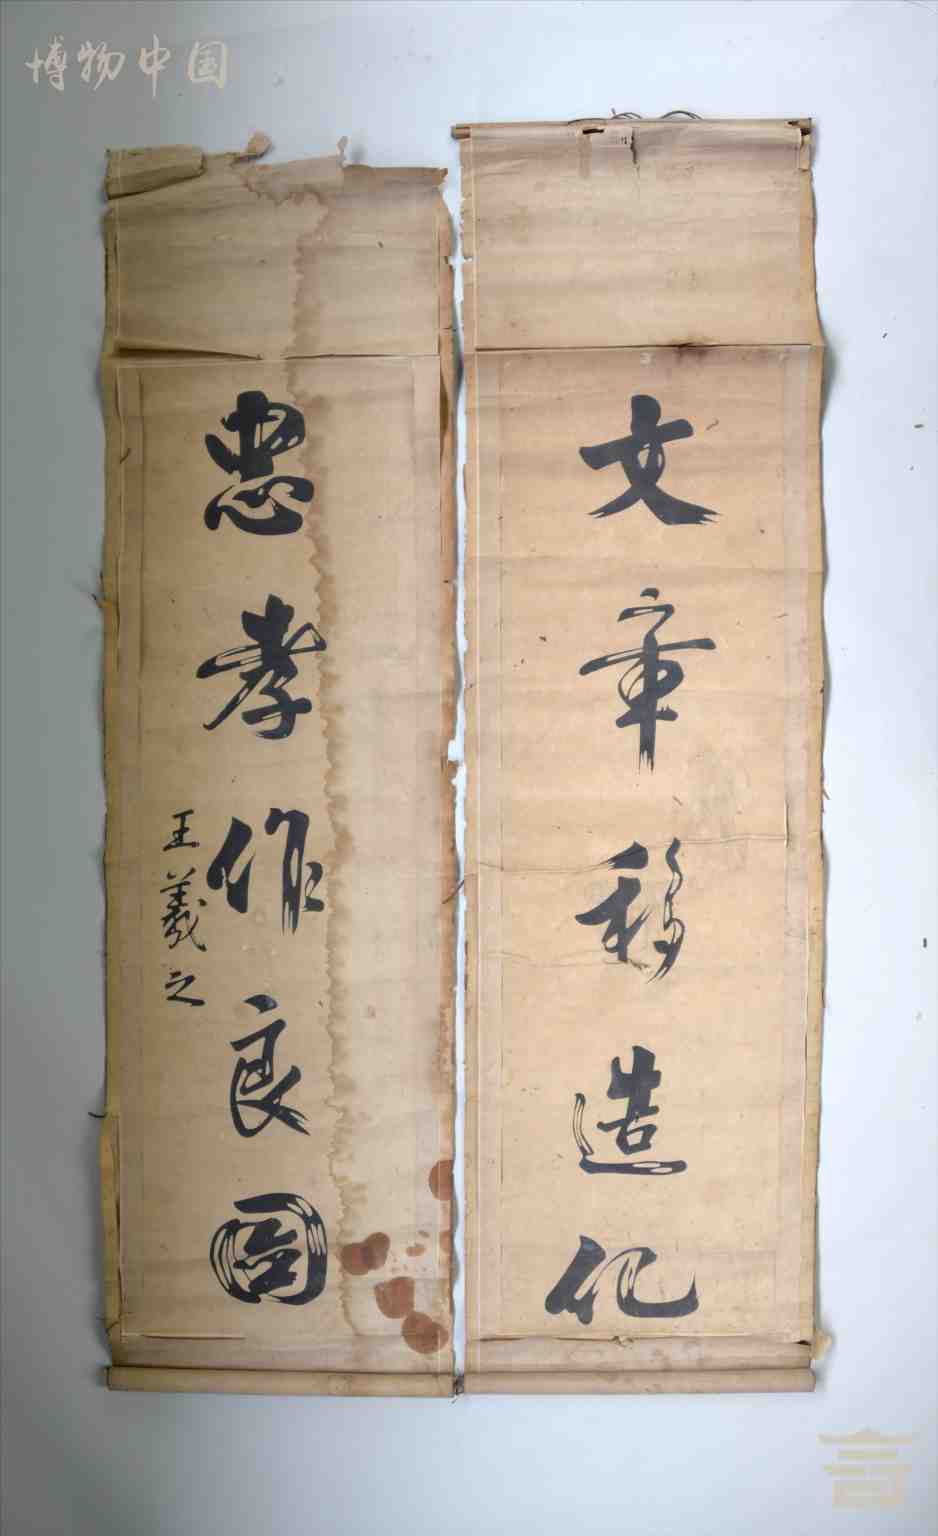 博物中国
文章移造化
忠孝作良图
王羲之